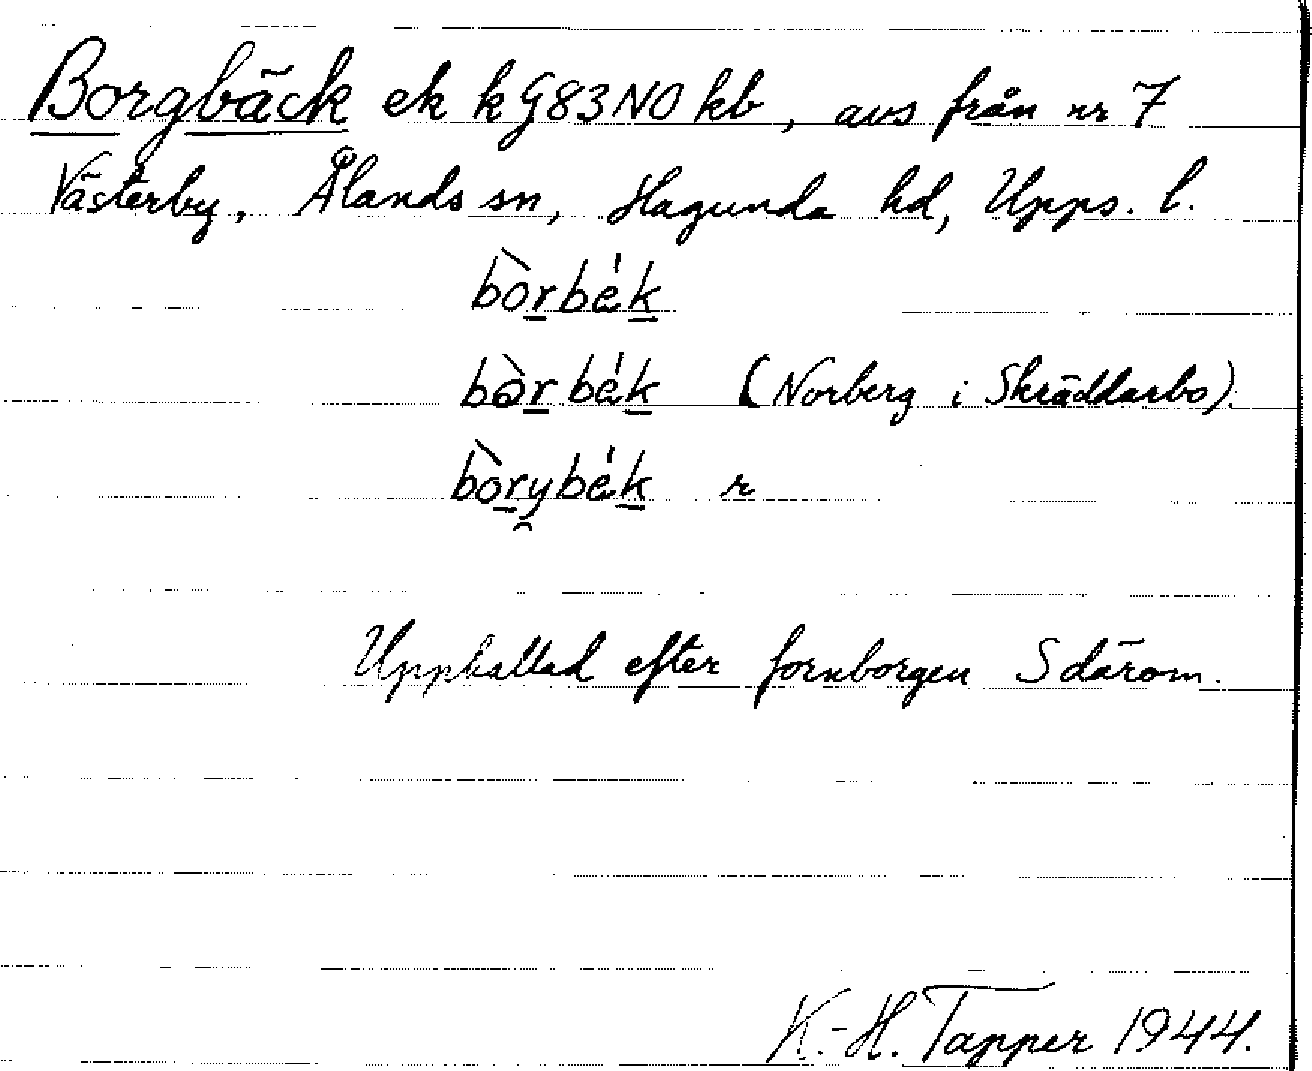 Borgbäck ek kG83NO kb, avs från nr 7
Västerby, Ålands sn, Hagunda hd, Upps. l.
bòrbék
bòrbék (Norberg i Skräddarbo).
bòrybék r
Uppkallad efter fornborgen S därom.
K.-H. Tapper 1944.